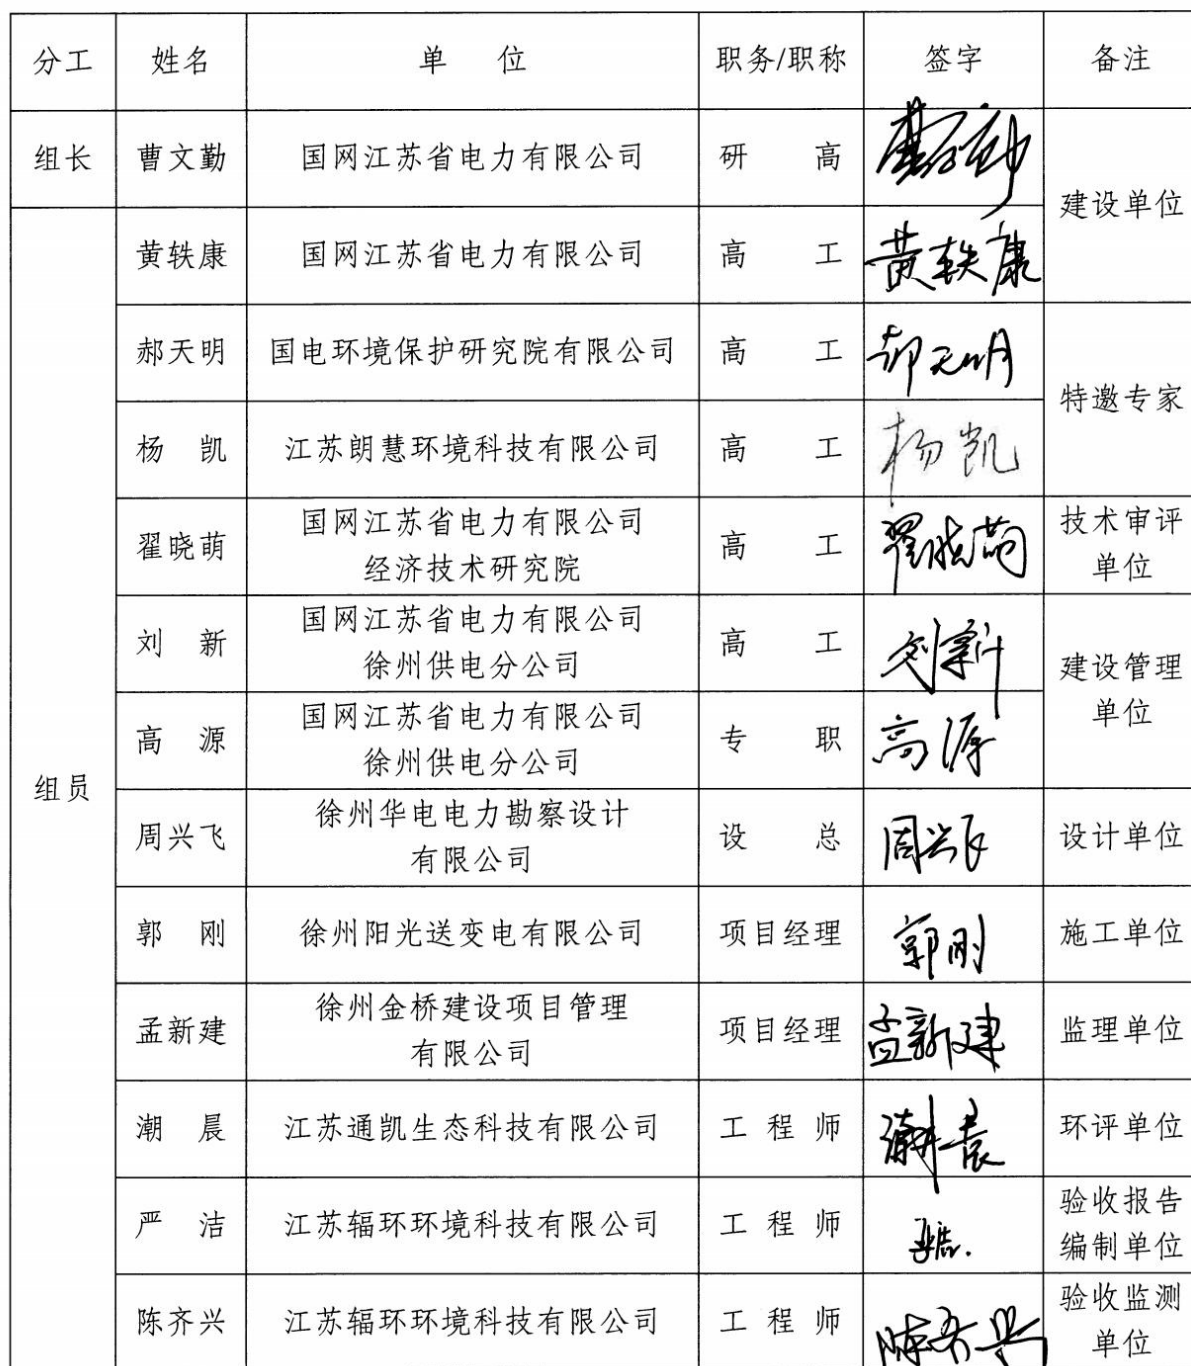 分工 姓名 单 位 职务/职称 签字 备注
组长 曹文勤 国网江苏省电力有限公司 研 高 曹文勤
建设单位
黄轶康 国网江苏省电力有限公司 高 工 黄轶康
郝天明 国电环境保护研究院有限公司 高 工 郝天明
特邀专家
杨 凯 江苏朗慧环境科技有限公司 高 工 杨凯
翟晓萌 国网江苏省电力有限公司
经济技术研究院 高 工 翟晓萌 技术审评
单位
刘 新 国网江苏省电力有限公司
徐州供电分公司 高 工 刘新
建设管理
单位
高 源 国网江苏省电力有限公司
徐州供电分公司 专 职 高源
组员
周兴飞 徐州华电电力勘察设计
有限公司 设 总 周兴飞 设计单位
郭 刚 徐州阳光送变电有限公司 项目经理 郭刚 施工单位
孟新建 徐州金桥建设项目管理
有限公司 项目经理 孟新建 监理单位
潮 晨 江苏通凯生态科技有限公司 工 程 师 潮晨 环评单位
严 洁 江苏辐环环境科技有限公司 工 程 师 严洁 验收报告
编制单位
陈齐兴 江苏辐环环境科技有限公司 工 程 师 陈齐兴 验收监测
单位